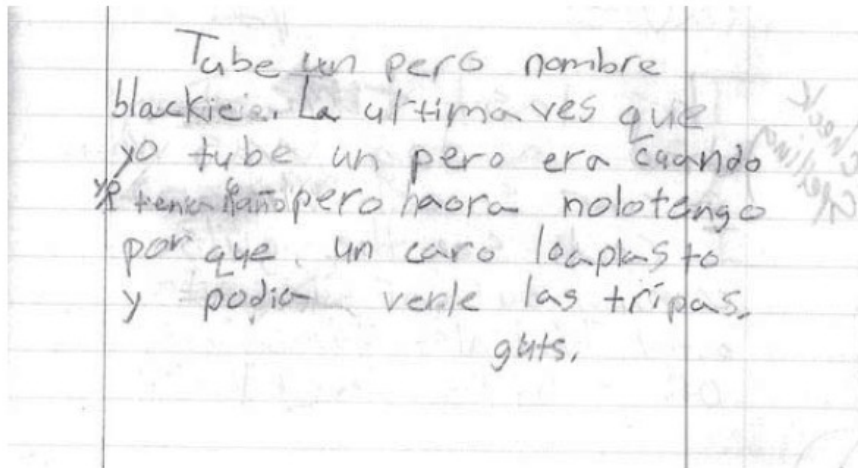 Tube un pero nombre
blackie. La ultima ves que
yo tube un pero era cuando
yo tenia años pero haora nolotengo
por que un caro loaplasto
y podia verle las tripas.
guts.